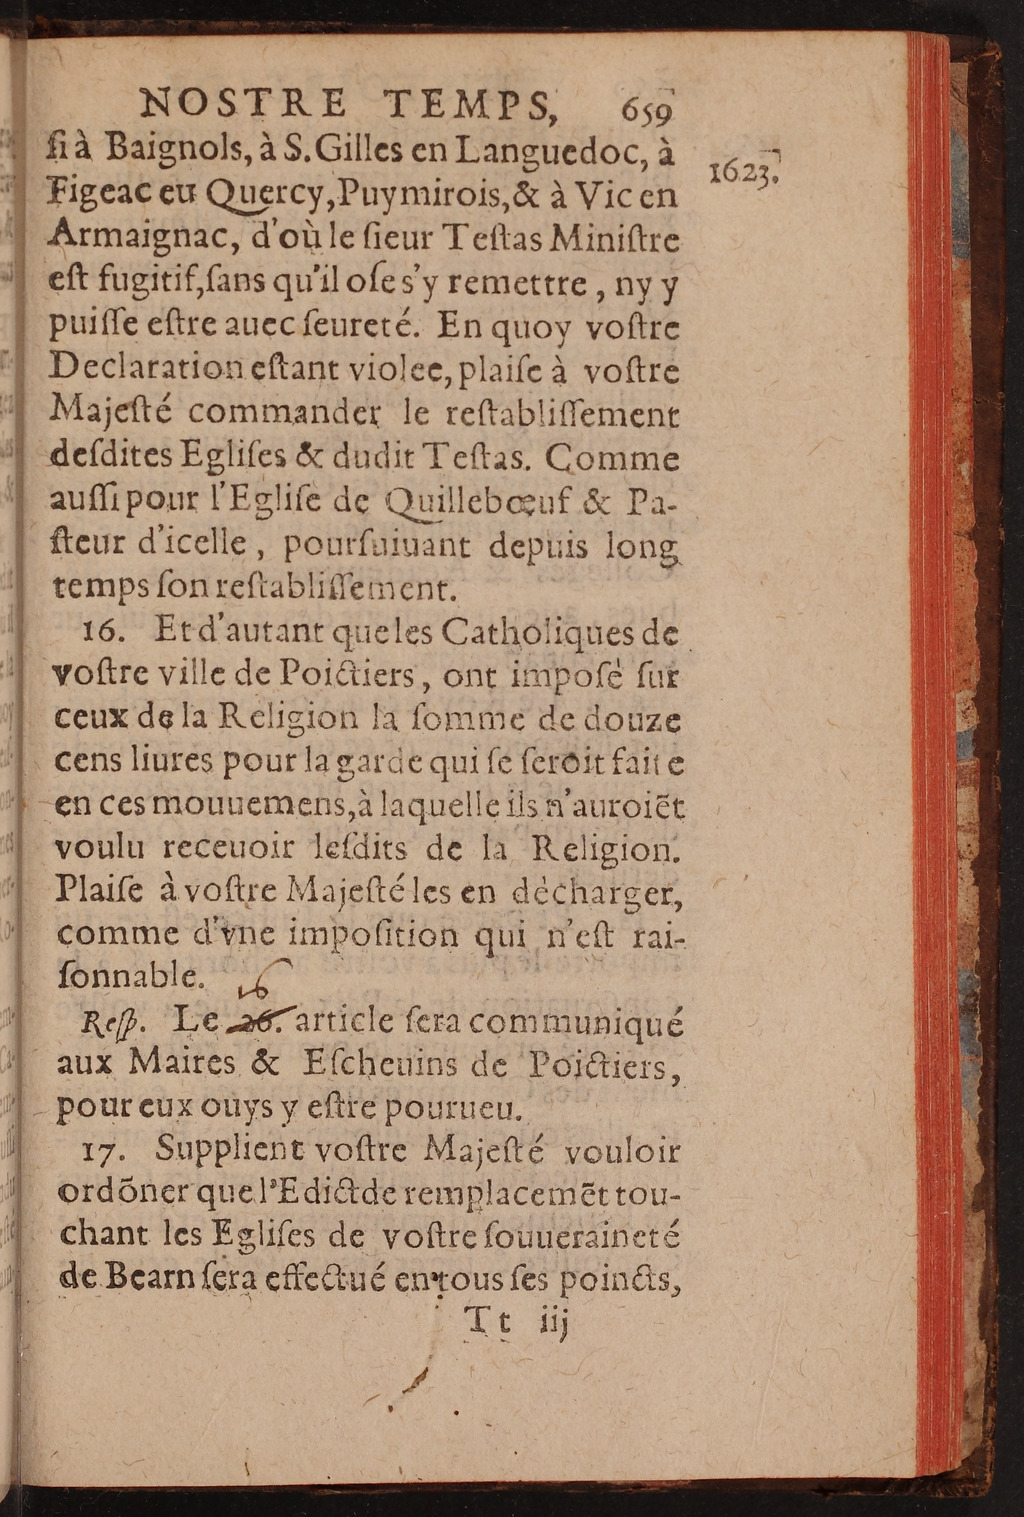 NOSTRE TEMPS, 659
1623.
ſi à Baignols, à S. Gilles en Languedoc, à
Figeac eu Quercy, Puymirois, & à Vic en
Armaignac, d'où le ſieur Teſtas Miniſtre
eſt fugitif, ſans qu'il oſe s'y remettre, ny y
puiſſe eſtre auec ſeureté. En quoy voſtre
Declaration eſtant violee, plaiſe à voſtre
Majeſté commander le reſtabliſſement
deſdites Egliſes & dudit Teſtas. Comme
auſſi pour l'Egliſe de Quillebœuf & Pa-
ſteur d'icelle, pourſuiuant depuis long
temps ſon reſtabliſſement.
16. Et d'autant que les Catholiques de
voſtre ville de Poictiers, ont impoſé ſur
ceux de la Religion la ſomme de douze
cens liures pour la garde qui ſe ſeroit faite
en ces mouuemens, à laquelle ils n'auroiẽt
voulu receuoir leſdits de la Religion.
Plaiſe à voſtre Majeſté les en décharger,
comme d'vne impoſition qui n'eſt rai-
ſonnable.
16
Reſp. Le 26. article ſera communiqué
aux Maires & Eſcheuins de Poictiers,
pour eux ouys y eſtre pourueu.
17. Supplient voſtre Majeſté vouloir
ordõner que l'Edict de remplacemẽt tou-
chant les Egliſes de voſtre ſouueraineté
de Bearn ſera effectué en tous ſes poincts,
Tt iij